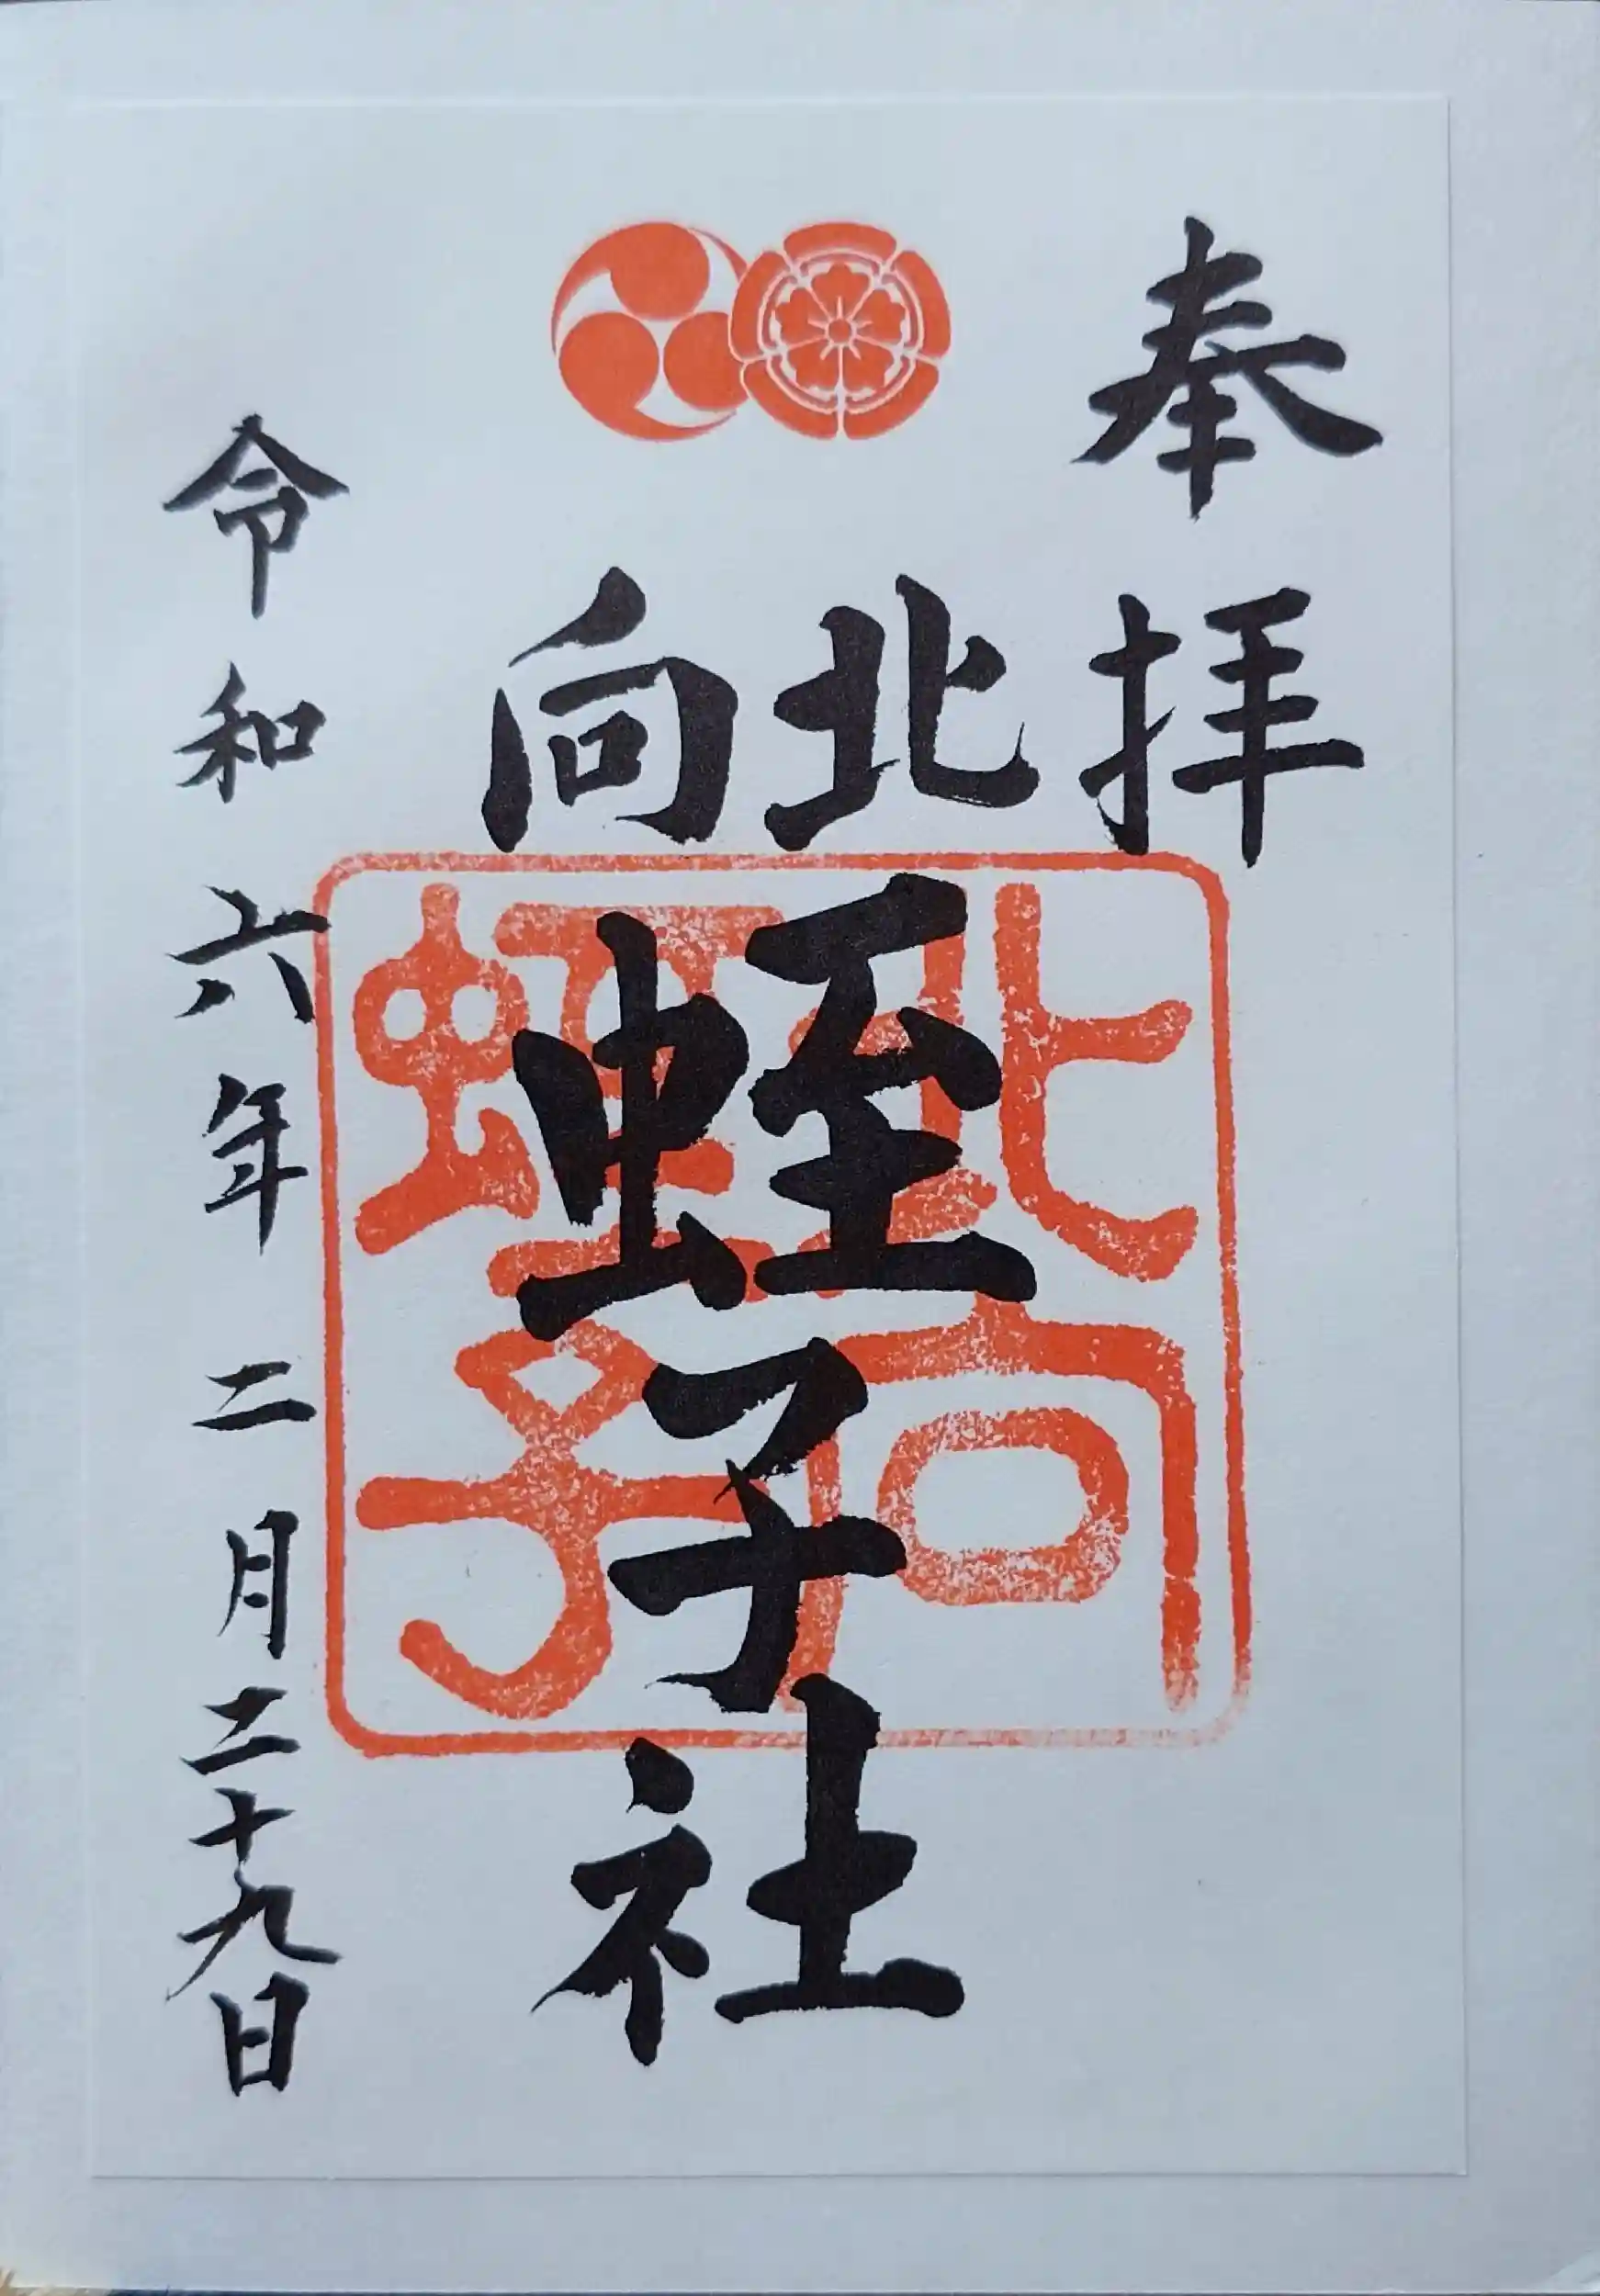 奉拝
北向
蛭子社
北向
蛭子
令和六年二月二十九日